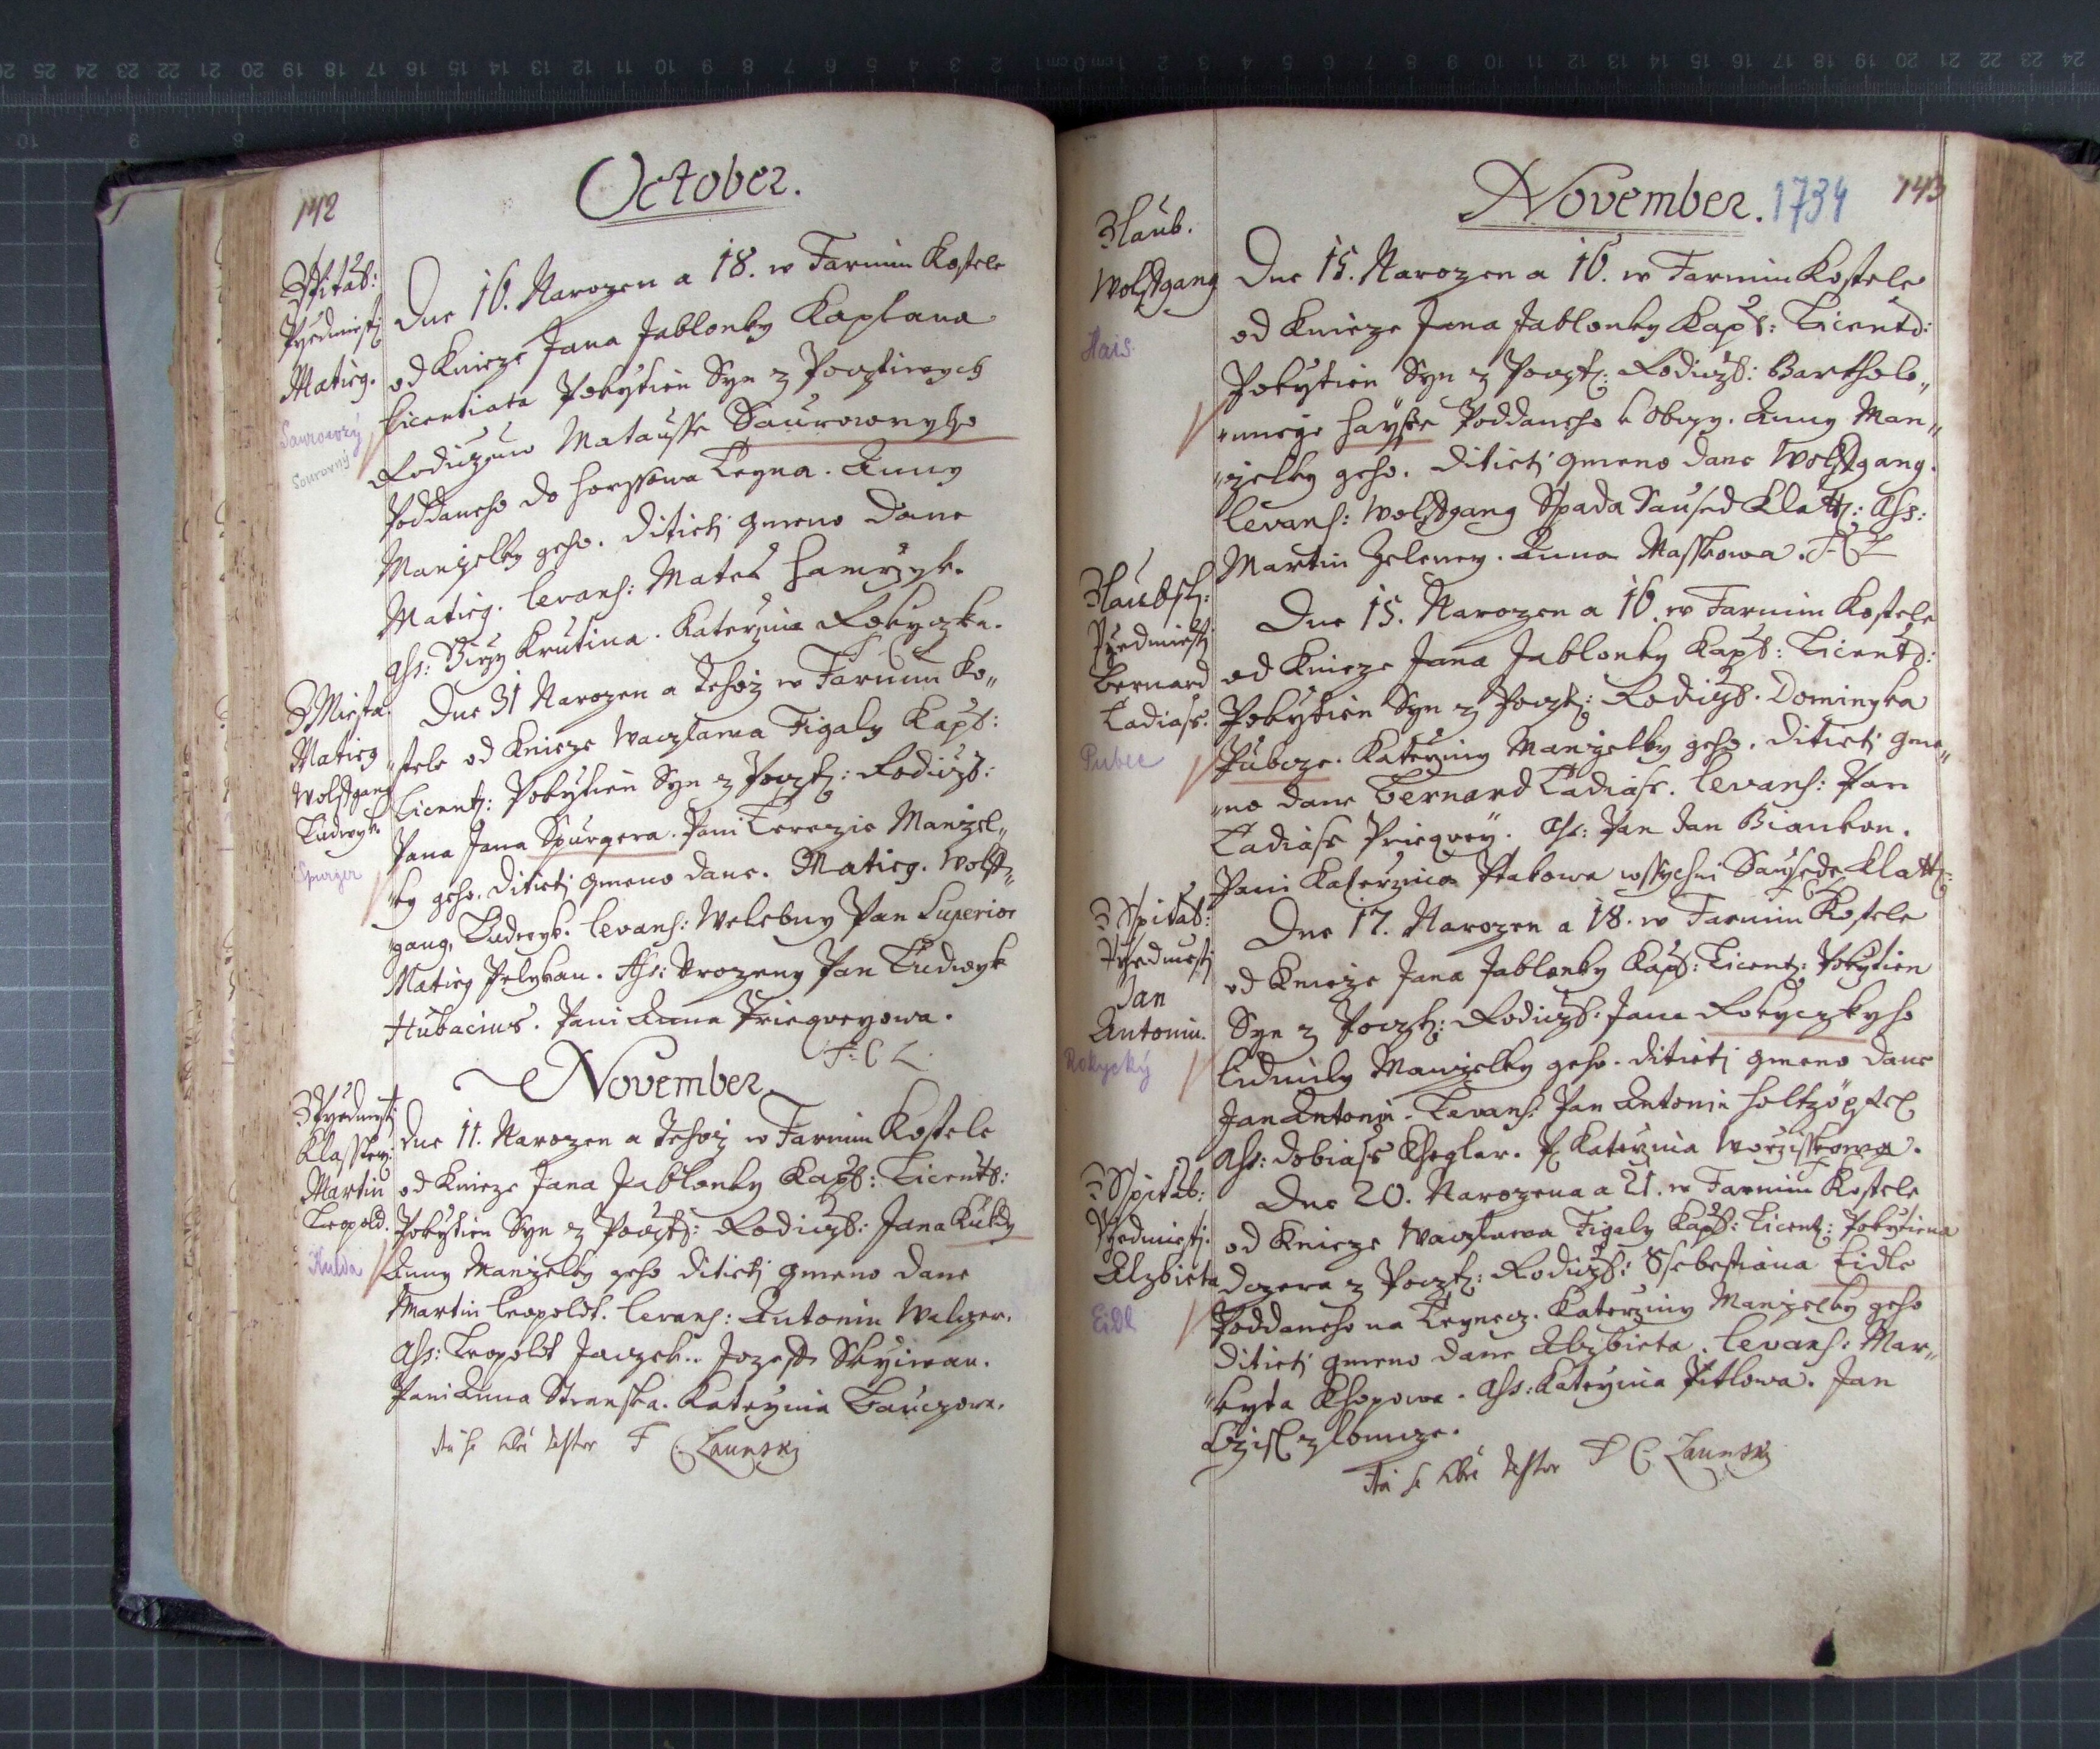 142
October.
Spitab:
Przedmiesti
Matieg.
Saurowný
Sourovný
Dne 16. Narozen a 18. w Farnim Kostele
od Knieze Jana Jablonky Kaplana
Licentiata Pokrztien Syn z Pocztiwych
Rodiczuw Matausse Saurownyho
Poddaneho do Horssowa Teyna. Anny
Manzelky geho. Ditieti gmeno dano
Matieg. Levans: Mateg Hamrzyk.
Ass: Girzy Krutina. Katerzina Rokyczka.
F C L
Z Miesta.
Matieg
Wolfgang
Ludwyk
Spurger
Dne 31 Narozen a Tehoz w Farnim Ko„
„stele od Knieze Waczlawa Figaly Kapl:
Licent: Pokrztien Syn z Poczt: Rodicz:
Pana Jana Spurgera. Pani Terezie Manzel„
„ky geho. Ditieti gmeno dano. Matieg. Wolff„
„gang, Ludwyk. Levans: Welebny Pan Superior
Matieg Pelykan. Ass: Urozeny Pan Ludwyk
Hubacius. Pani Anna Priegveyowa.
F: C L
November
Z Przedmiesti
Klasster:
Martin
Leopold.
Kulda
Dne 11. Narozen a Tehoz w Farnim Kostele
od Knieze Jana Jablonky Kapl: Licent:
Pokrztien Syn z Poczt: Rodicz: Jana Kuldy
Anny Manzelky geho Ditieti gmeno dano
Martin Leopoldt. Levans: Antonin Walczer.
Ass: Leopoldt Jaczek.. Jozeff Skrziwan.
Pani Anna Stranska. Katerzina Bauczowa.
F C Launsky
November. 1734
143
Z Laub.
Wolfgang
Hais
Dne 15. Narozen a 16. w Farnim Kostele
od Knieze Jana Jablonky Kapl: Licent:
Pokrztien Syn z Poczt: Rodicz: Bartholo„
„mnege Haysse Poddaneho k Obczy. Anny Man„
„zelky geho. Ditieti gmeno dano Wolfgang.
Levans: Wolfgang Spada Saused Klatt: Ass:
Martin Zeleney. Anna Masskowa. F C L
Z Laubsk:
Przedmiesti
Bernard
Tadiass.
Pubec
Dne 15. Narozen a 16. w Farnim Kostele
od Knieze Jana Jablonky Kapl: Licent:
Pokrztien Syn z Poczt: Rodicz: Dominyka
Pubcze. Katerziny Manzelky geho. Ditieti gme„
„no dano Bernard Tadiass. Levans: Pan
Tadiass Priegvey. Ass: Pan Jan Biankon.
Pani Katerzina Ptakowa wssychni Sausede Klatt:
Z Spitab:
Przedmiesti
Jan
Antonin.
Rokycký
Dne 17. Narozen a 18. w Farnim Kostele
od Knieze Jana Jablonky Kapl: Licent: Pokrztien
Syn z Poczt: Rodicz: Jana Rokyczkyho
Lidmily Manzelky geho. Ditieti gmeno dano
Jan Antonin. Levans: Pan Antonin Holtzöpfel
Ass: Dobiass Cheglar. P: Katerzina Worzisskowa.
Z Spitab:
Przedmiesti.
Alzbieta
Eidl
Dne 20. Narozena a 21. w Farnim Kostele
od Knieze Waczlawa Figaly Kapl: Licent: Pokrztiena
Dczera z Poczt: Rodicz: Ssebestiana Eidle
Poddaneho na Teynecz. Katerziny Manzelky geho
Ditieti gmeno dano Alzbieta. Levans: Mar„
„kyta Chopowa. Ass: Katerzina Pitlowa. Jan
F C Launsky